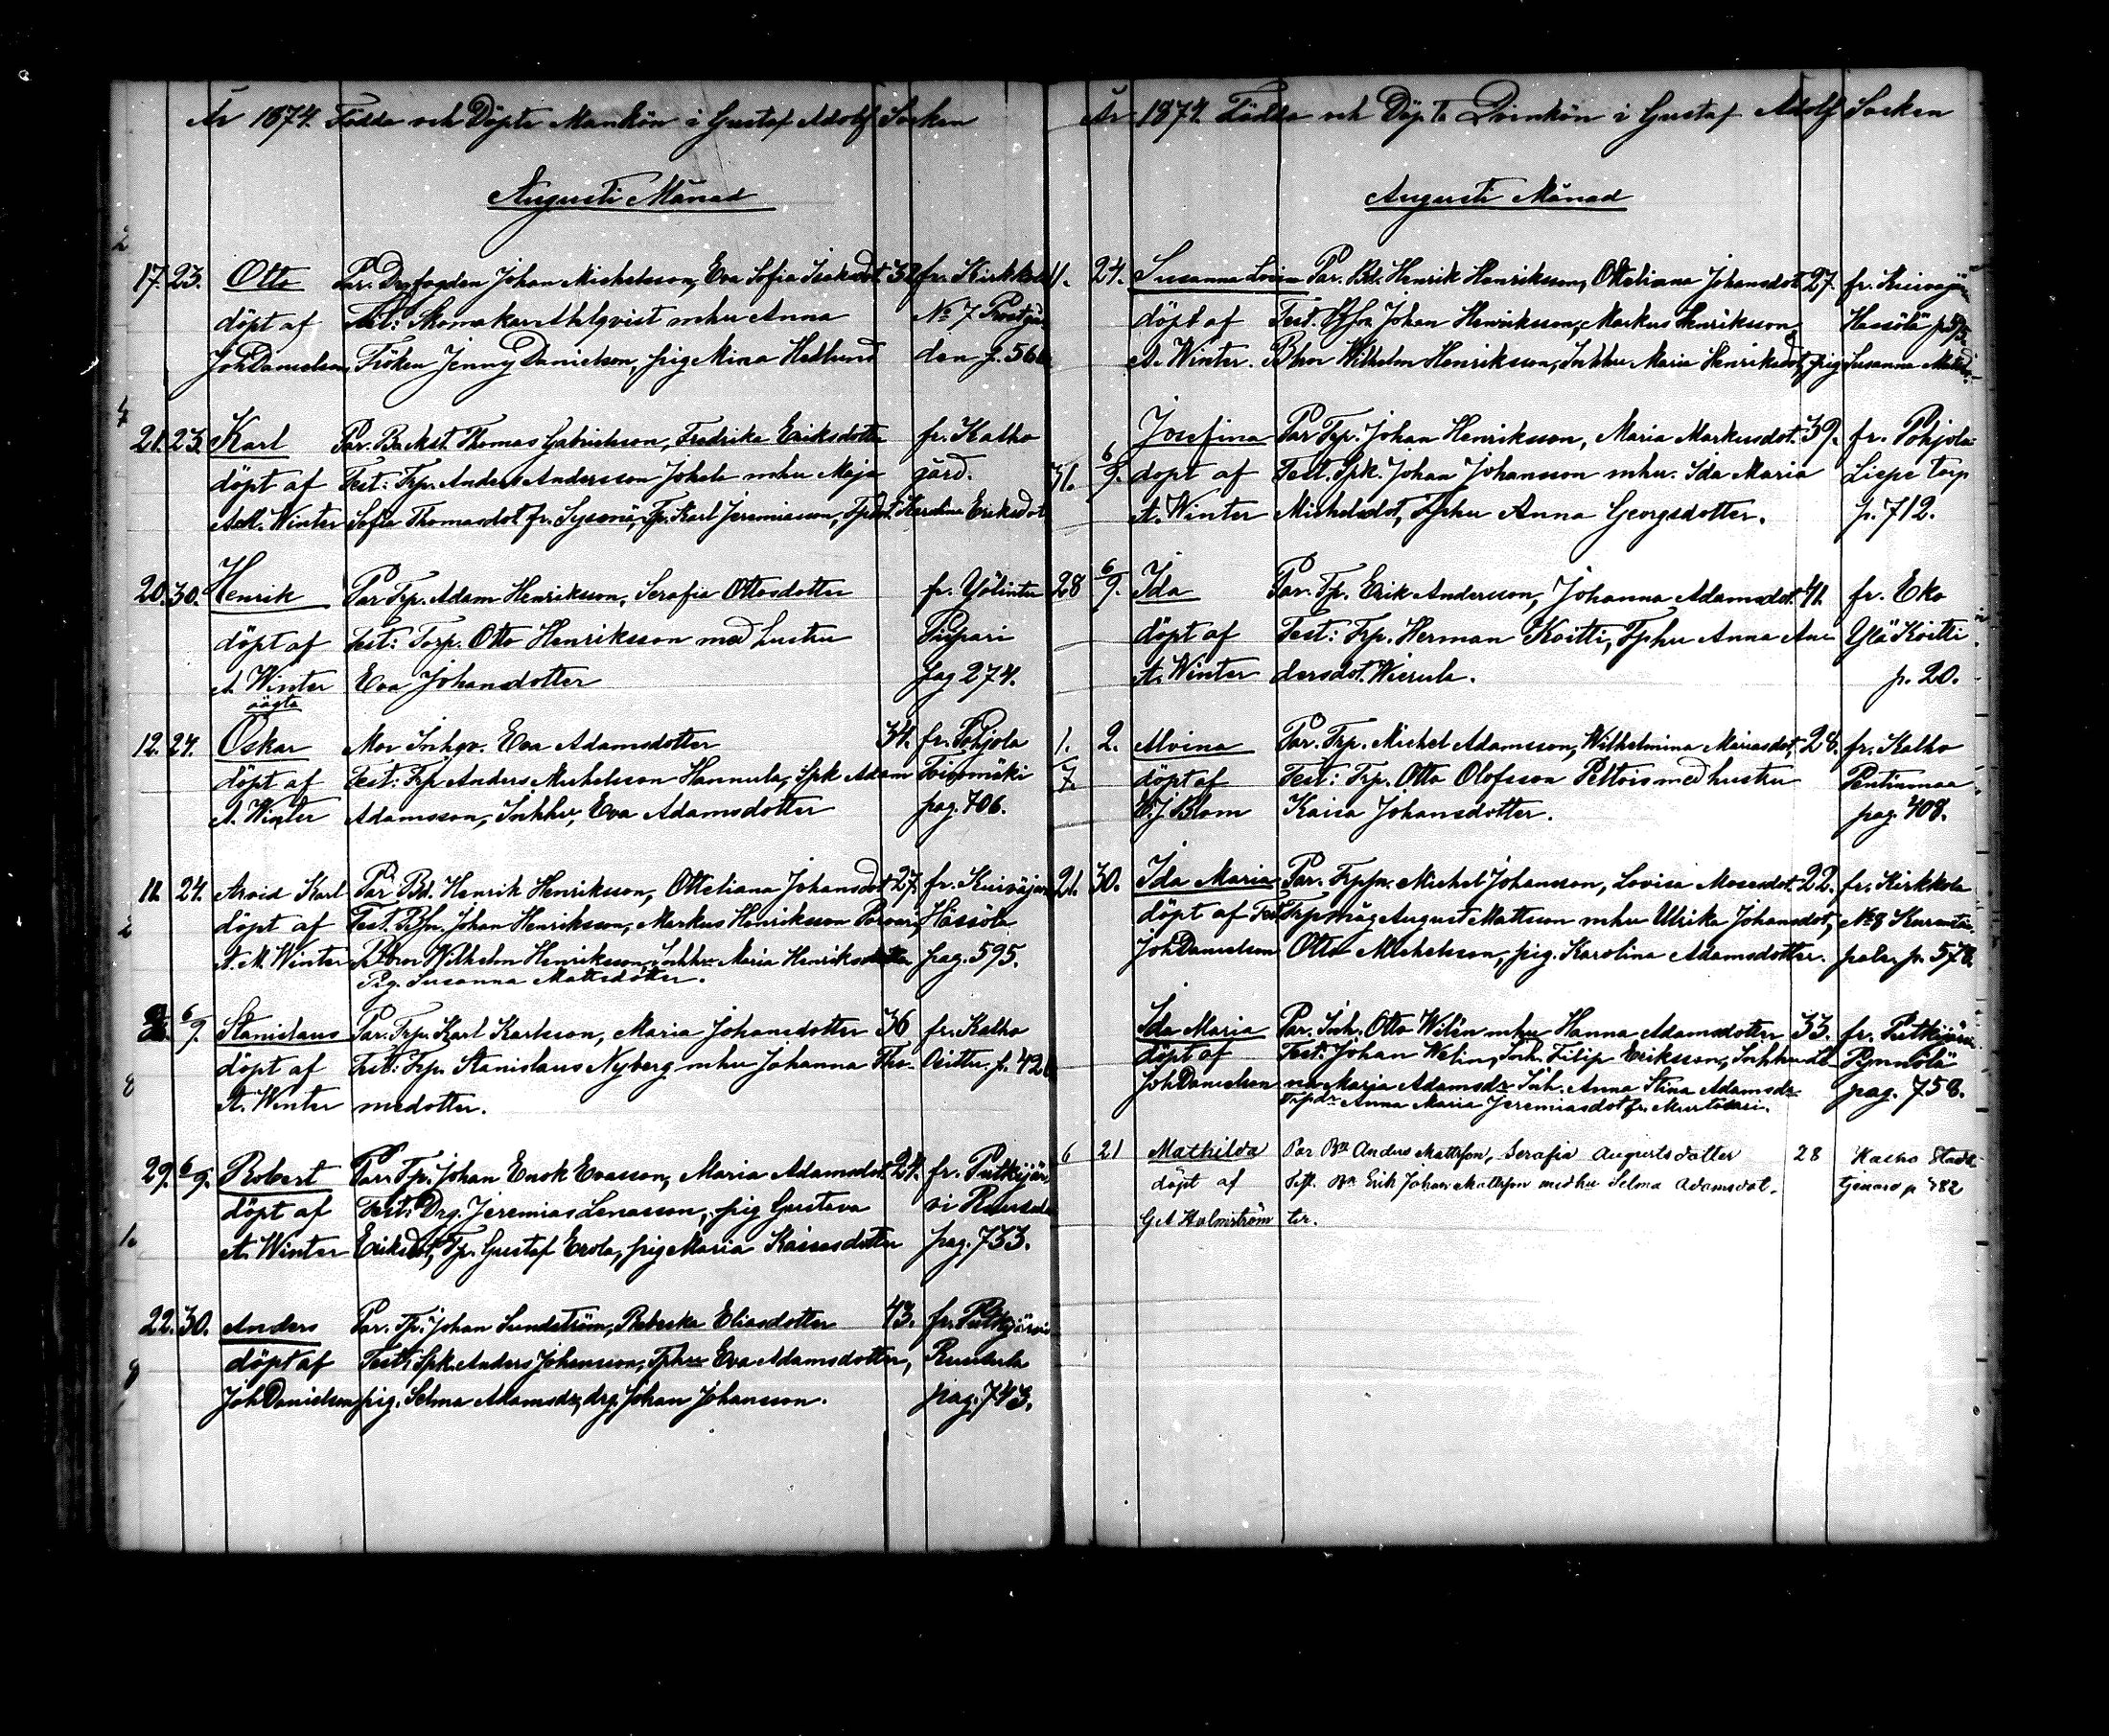 År 1874. Födda och Döpte Mankön i Gustaf Adolf Socken
Augusti Månad
17. 23. Otto Par. Drgfogden Johan Michelsson, Eva Sofia Isaksdot. 32 fr. Kirkkola
döpt af Test: Skomakar Ahlqvist mhu Anna No 7 Prostgår
Joh Danielson, Fröken Jenny Danielson, pig Mina Hedlund den p. 566
21. 23. Karl Par. Backst. Thomas Gabrielsson, Fredrika Eriksdotter fr. Kalho
döpt af Test: Trp. Anders Andersson Jokela mhu Maja gård.
A.M. Winter Sofia Thomasdot. fr. Sysmä, Tp. Karl Jeremiasson, Tpdot. Karolina Eriksdot
20. 30. Henrik Par Trp. Adam Henriksson, Serafia Ottosdotter fr. Yölintu
döpt af Test: Torp. Otto Henriksson med hustru
A. Winter Eva Johansdotter pag 274.
oägta
12. 24. Oskar Mor Inhqv. Eva Adamsdotter 34. fr. Pohjola
döpt af Test: Trp Anders Michelsson Hannula, Spk Adam Toivomäki
A. Winter Adamsson, Inhhu, Eva Adamsdotter pag. 706.
11. 24. Arvid Karl Par Bd. Henrik Henriksson, Otteliana Johansdot 27. fr. Kuivajärvi
döpt af Test. Bfn. Johan Henriksson, Markus Henriksson Hassölä
A. M. Winter Bbror Wilhelm Henriksson, Inhhu Maria Henriksdotter pag. 595.
Pig. Susanna Mattsdotter.
6/9. Stanislaus Par. Trp. Karl Karlsson, Maria Johansdotter 36 fr. Kalho
döpt af Test: Trp. Stanislaus Nyberg mhu Johanna Tho- Osittu. p. 420
A. Winter masdotter.
29. 6/9. Robert Par. Tp. Johan Enok Evasson, Maria Adamsdot. 24. fr. Putkijär
döpt af Test: Drg. Jeremias Lenasson, pig Gustava vi Ruusula
A. Winter Eriksdot, Tp. Gustaf Erola, pig Maria Kaisasdotter pag. 733.
22. 30. Anders Par. Tp. Johan Sundström, Rebecka Eliasdotter 43. fr. Putkijärvi
döpt af Test: Spk. Anders Johansson, Tphu Eva Adamsdotter, Ruusula
Joh Danielson, pig. Selma Adamsdr, drg. Johan Johansson. pag. 743.
År 1874. Födda och Döpta Qvinkön i Gustaf Adolf Socken
Augusti Månad
11. 24. Susanna Lovisa Par. Bd. Henrik Henriksson, Otteliana Johansdot 27. fr. Kuivajär
döpt af Test. Bfn Johan Henriksson, Markus Henriksson, Hassölä p. 595
A. Winter. Bbror Wilhelm Henriksson, Inhhu Maria Henriksdot, pig Susanna Mattsd.
Josefina Par Trp. Johan Henriksson, Maria Markusdot. 39. fr. Pohjola
31. 6/9. döpt af Test. Spk. Johan Johansson mhu. Ida Maria Liepe torp
A. Winter Michelsdot, Tphu Anna Georgsdotter. p. 712.
28 6/9. Ida Par. Tp. Erik Andersson, Johanna Adamsdot. 41. fr. Eko
döpt af Test: Trp. Herman Koitti, Tphu Anna An- Ylä Koitti
A. Winter dersdot. Wierula. p. 20.
1. 2. Alvina Par. Trp. Michel Adamsson, Wilhelmina Mariasdot, 28. fr. Kalho
7. döpt af Test: Trp. Otto Olofsson Peltois med hustru Pentinmaa
O. J. Blom Kaisa Johansdotter. pag. 408.
21. 30. Ida Maria Par. Trpfn. Michel Johansson, Lovisa Mosesdot. 22. fr. Kirkkola
döpt af Test. Trpmåg August Mattsson mhu Ulrika Johansdot, No 8
Joh Danielson Otto Michelsson, pig. Karolina Adamsdotter. p. 578.
Ida Maria Par. Inh. Otto Welin mhu Hanna Adamsdotter 33. fr. Putkijärvi
döpt af Test: Johan Welin, Inh. Filip Eriksson, Inhhu Le- Rymnölä
Joh Danielson na Maria Adamsdr Inh. Anna Stina Adamsdr pag. 758.
Trpdr Anna Maria Jeremiasdot fr.
6 21 Mathilda Par Bn Anders Mattsson, Serafia Augustsdotter 28 Kalho
döpt af Test. Bn Erik Johan Mattsson med hu Selma Adamsdot- p 382
G A Holmström ter.